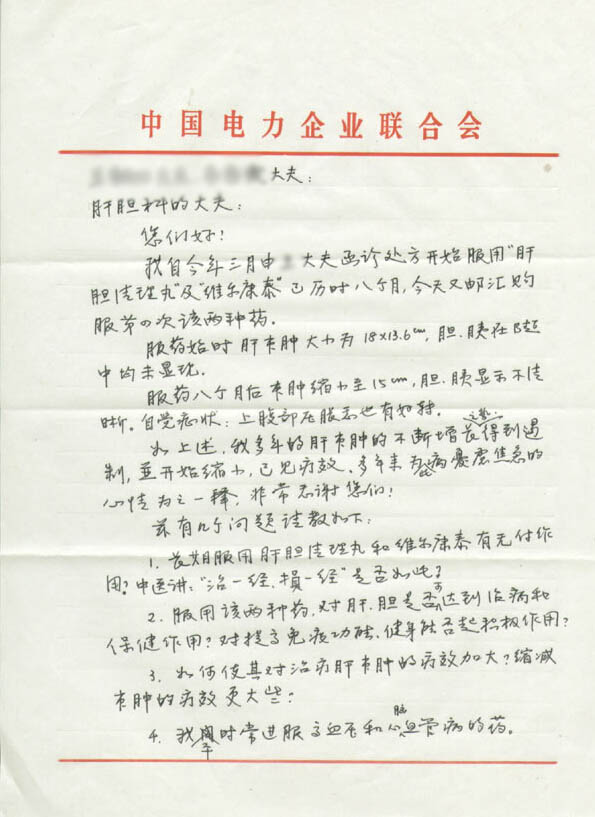 中国电力企业联合会
大夫:
肝胆科的大夫:
您们好!
我自今年三月由 大夫函诊处方开始服用"肝
胆清理丸"及"维尔康泰"已历时八个月,今天又邮汇购
服第四次该两种药。
服药始时肝囊肿大小为18x13.6cm,胆.胰在B超
中均未显现。
服药八个月后囊肿缩小至15cm,胆.胰显示不清
晰。自觉症状:上腹部压胀感也有好转。
如上述,我多年的肝囊肿的不断增长得到遏
制,並开始缩小,已见疗效。多年来为此病忧虑焦急的
心情为之一释,非常感谢您们!
兹有几个问题请教如下:
1.长期服用肝胆清理丸和维尔康泰有无付作
用?中医讲:"治一经,损一经"是否如此?
2.服用该两种药,对肝.胆是否可达到治病和
保健作用?对提高免疫功能、健身能否起积极作用?
3.如何使其对治疗肝囊肿的疗效加大?缩减
囊肿的疗效更大些?
4.我平时常进服高血压和心脑血管病的药。